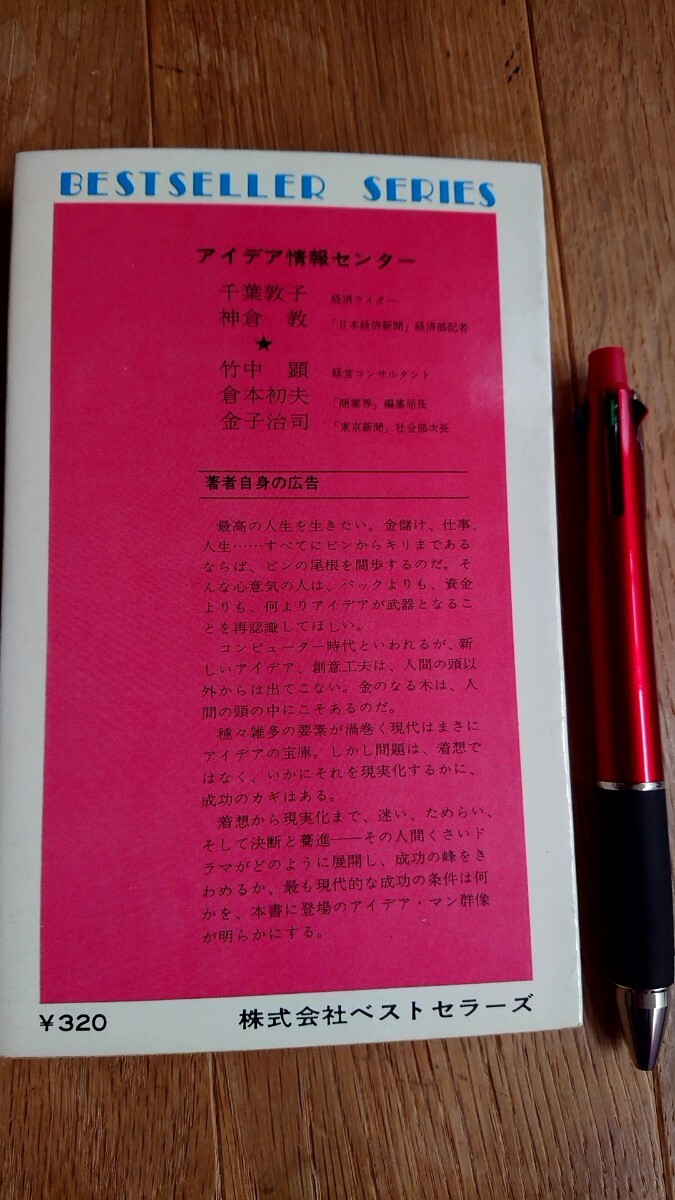 BESTSELLER SERIES
アイデア情報センター
千葉敦子 経済ライター
神倉 教 「日本経済新聞」経済部記者
★
竹中 顕 経営コンサルタント
倉本初夫 「商業界」編集局長
金子治司 「東京新聞」社会部次長
著者自身の広告
最高の人生を生きたい。金儲け、仕事、
人生……すべてにピンからキリまである
ならば、ピンの尾根を闊歩するのだ。そ
んな心意気の人は、バックよりも、資金
よりも、何よりアイデアが武器となるこ
とを再認識してほしい。
コンピューター時代といわれるが、新
しいアイデア、創意工夫は、人間の頭以
外からは出てこない。金のなる木は、人
間の頭の中にこそあるのだ。
種々雑多の要素が渦巻く現代はまさに
アイデアの宝庫。しかし問題は、着想で
はなく、いかにそれを現実化するかに、
成功のカギはある。
着想から現実化まで、迷い、ためらい、
そして決断と驀進――その人間くさいド
ラマがどのように展開し、成功の峰をき
わめるか、最も現代的な成功の条件は何
かを、本書に登場のアイデア・マン群像
が明らかにする。
¥320 株式会社ベストセラーズ